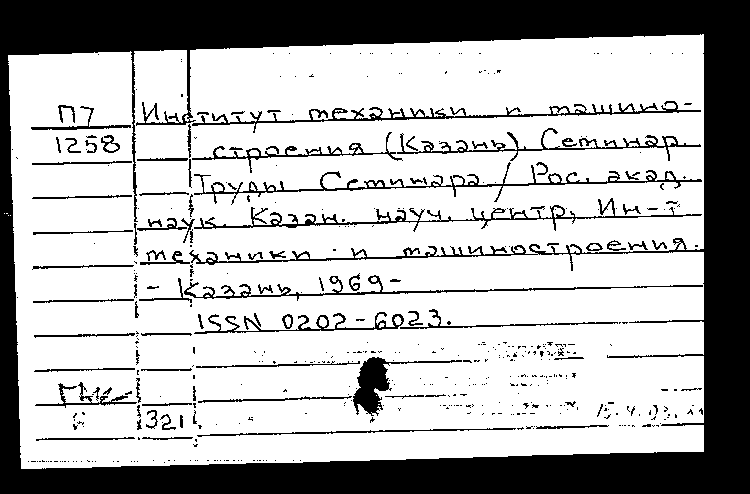 П7 Институт механики и машино-
1258 строения (Казань). Семинар.
Труды Семинара / Рос. акад.
наук. Казан. науч. центр, Ин-т
механики и машиностроения.
- Казань, 1969-
ISSN 0202-6023.
321
15.4.03.